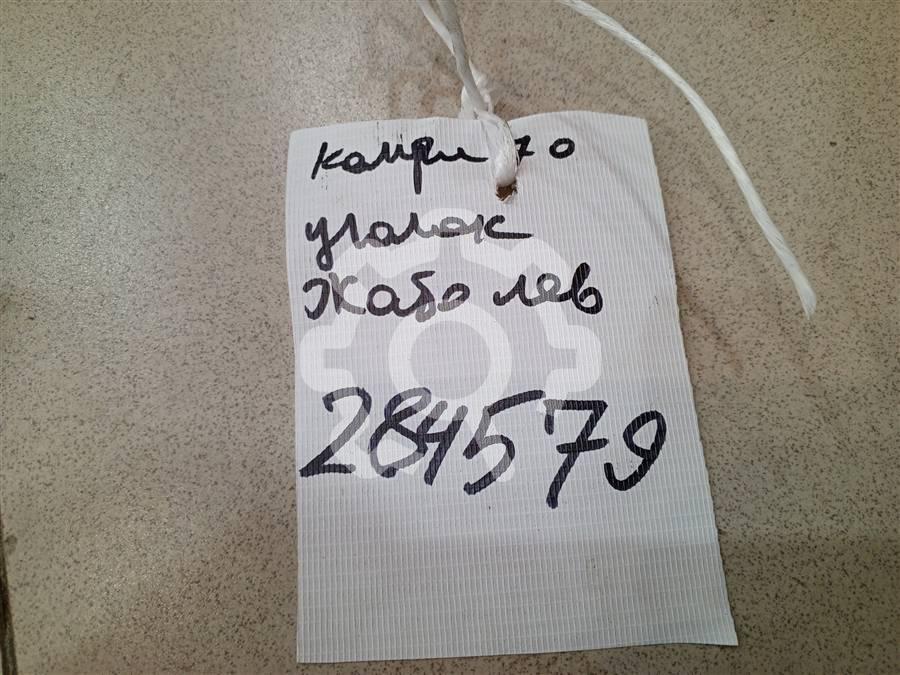 камри 70
уголок
жабо лев
284579